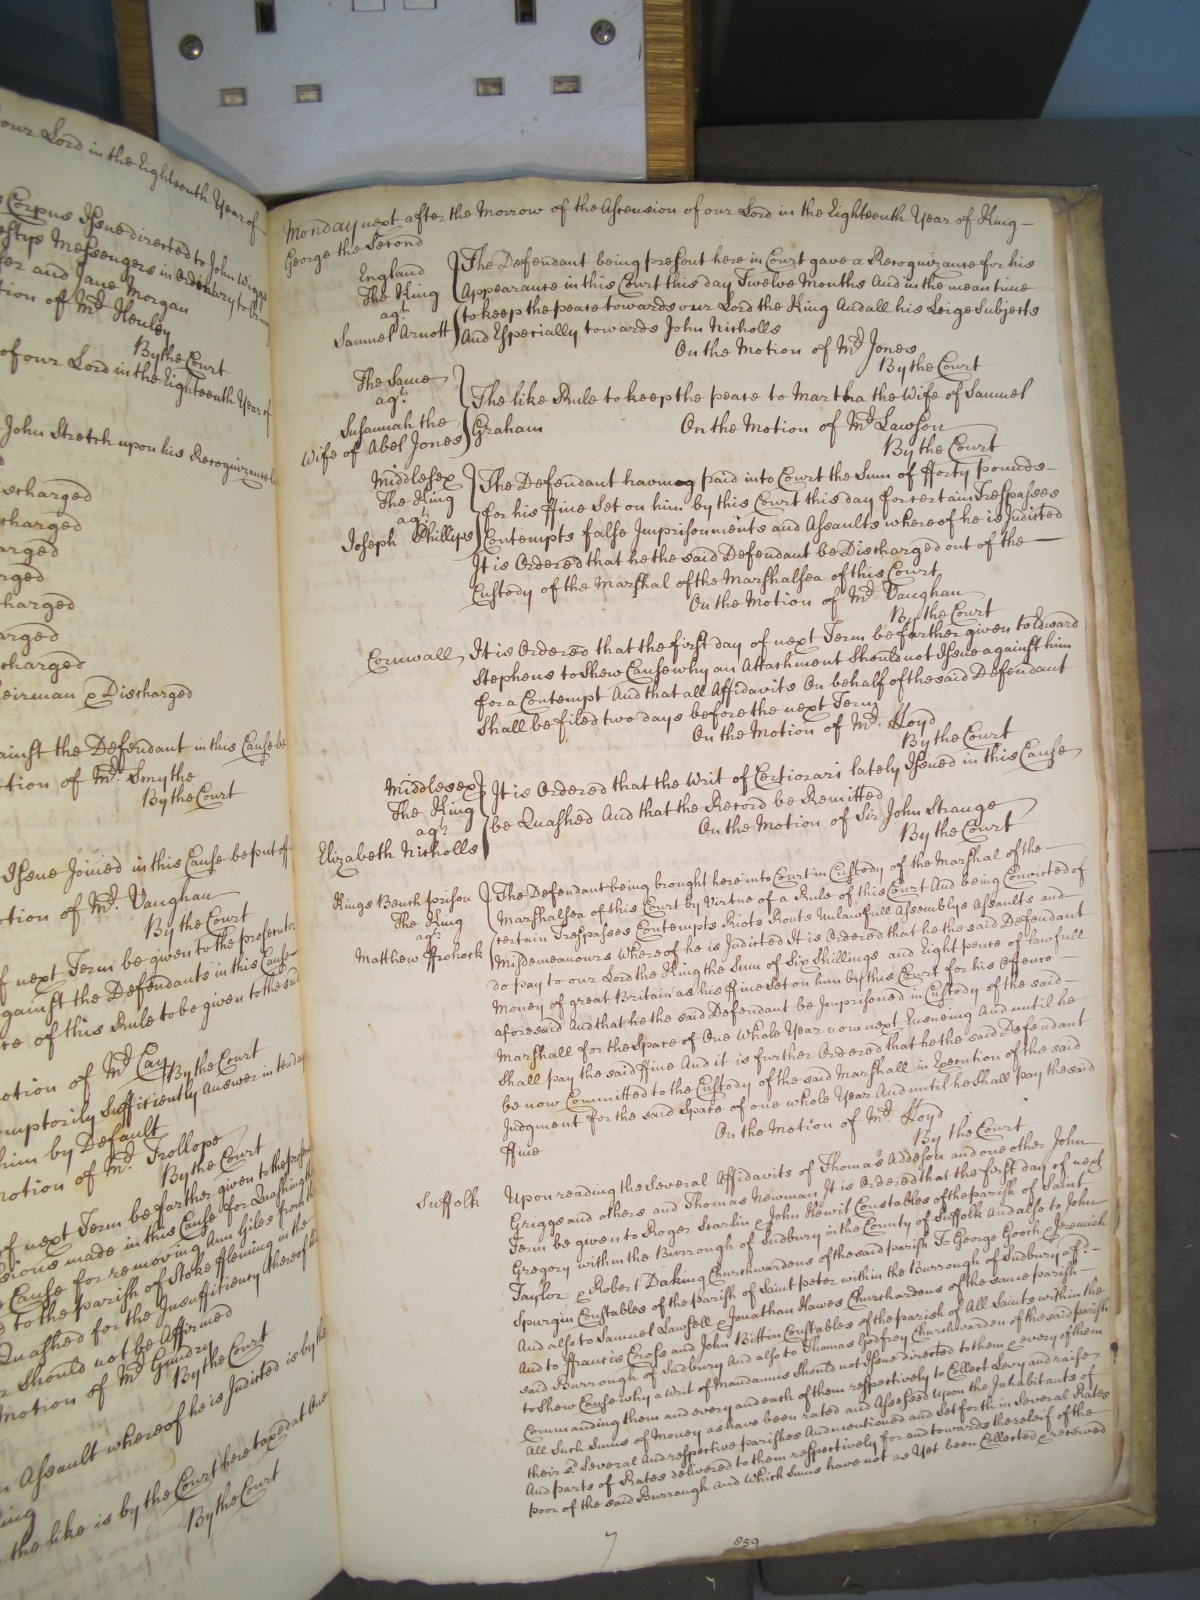 our Lord in the Eighteenth Year of
Corpus Issue directed to John Wiggs
Messengers in Ordinary to bring
and Jane Morgan
tion of Mr. Henley
By the Court
of our Lord in the Eighteenth Year of
John Stretch upon his Recognizance
scharged
charged
arged
rged
charged
arged
charged
eirman & Discharged
ainst the Defendant in this Cause be
ction of Mr. Smythe
By the Court
Issue Joined in this Cause be put off
otion of Mr. Vaughan
By the Court
f next Term be given to the prosecutor
gainst the Defendants in this Cause
ce of this Rule to be given to the said
otion of Mr. Cay
By the Court
emptorily Sufficiently Answer in ten days
him by Default
Motion of Mr. Trollope
By the Court
of next Term be farther given to the
sions made in this Cause for Quashing the
Cause for removing Ann Giles from the
d to the parish of Stoke Fleming in the
Quashed for the Insufficiency thereof
r Should not be Affirmed
Motion of Mr. Gundry
By the Court
n Assault whereof he is Indicted is by the
ing
the like is by the Court here taxed at
By the Court
Monday next after the Morrow of the Ascension of our Lord in the Eighteenth Year of King
George the Second
England
The King
agt.
Samuel Arnott
The Defendant being present here in Court gave a Recognizance for his
Appearance in this Court this day Twelve Months And in the mean time
to keep the peace towards our Lord the King And all his Leige Subjects
And Especially towards John Nicholls
On the Motion of Mr. Jones
By the Court
The Same
agt.
Susannah the
Wife of Abel Jones
The like Rule to keep the peace to Martha the Wife of Samuel
Graham
On the Motion of Mr. Lawson
By the Court
Middlesex
The King
agt.
Joseph Phillips
The Defendant having paid into Court the Sum of fforty pounds
for his ffine Set on him by this Court this day for certain Trespasses
Contempts false Imprisonments and Assaults whereof he is Indicted
It is Ordered that he the said Defendant be Discharged out of the
Custody of the Marshal of the Marshalsea of this Court
On the Motion of Mr. Vaughan
By the Court
Cornwall
It is Ordered that the first day of next Term be farther given to Edward
Stephens to Shew Cause why an Attachment Should not Issue against him
for a Contempt And that all Affidavits On behalf of the said Defendant
Shall be filed two days before the next Term
On the Motion of Mr. Lloyd
By the Court
Middlesex
The King
agt.
Elizabeth Nicholls
It is Ordered that the Writ of Certiorari lately Issued in this Cause
be Quashed And that the Record be Remitted
On the Motion of Sir John Strange
By the Court
Kings Bench prison
The King
agt.
Matthew
The Defendant being brought here into Court in Custody of the Marshal of the
Marshalsea of this Court by Virtue of a Rule of this Court And being Convicted of
certain Trespasses Contempts Riots Routs Unlawfull Assemblys Assaults and
Misdemeanours Whereof he is Indicted It is Ordered that he the said Defendant
do pay to our Lord the King the Sum of Six Shillings and Eight pence of lawfull
Money of great Britain as his ffine Set on him by this Court for his offence
aforesaid And that he the said Defendant be Imprisoned in Custody of the said
Marshall for the Space of One Whole Year now next Ensueing And until he
Shall pay the said ffine And it is further Ordered that he the said Defendant
be now Committed to the Custody of the said Marshall in Execution of the said
Judgment for the said Space of one whole Year And until he Shall pay the said
ffine
On the Motion of Mr. Lloyd
By the Court
Suffolk
Upon reading the Several Affidavits of Thomas Addeson and one other John
Griggs and others and Thomas Newman It is Ordered that the first day of next
Term be given to Roger Scarlin & John Hewit Constables of the parish of Saint
Gregory within the Burrough of Sudbury in the County of Suffolk And also to John
Taylor & Robert Daking Churchwardens of the said parish To George Gooch & Jeremiah
Spurgin Constables of the parish of Saint peter within the Burrough of Sudbury afd.
And also to Samuel Lawsell & Jonathan Hawes Churchwardens of the same parish
And to ffrancis Cross and John Bittin Constables of the parish of All Saints within the
said Burrough of Sudbury And also to Thomas Godfrey Churchwarden of the said parish
to Shew Cause why a Writ of Mandamus Should not Issue directed to them & every of them
Commanding them and every and each of them respectively to Collect Levy and raise
All Such Sums of Money as have been rated and Assessed upon the Inhabitants of
their sd. Several And respective parishes And mentioned and Set forth in Several Rates
And parts of Rates delivered to them respectively for and towards the releif of the
poor of the said Burrough And Which Sums have not as Yet been Collected & received
7
859